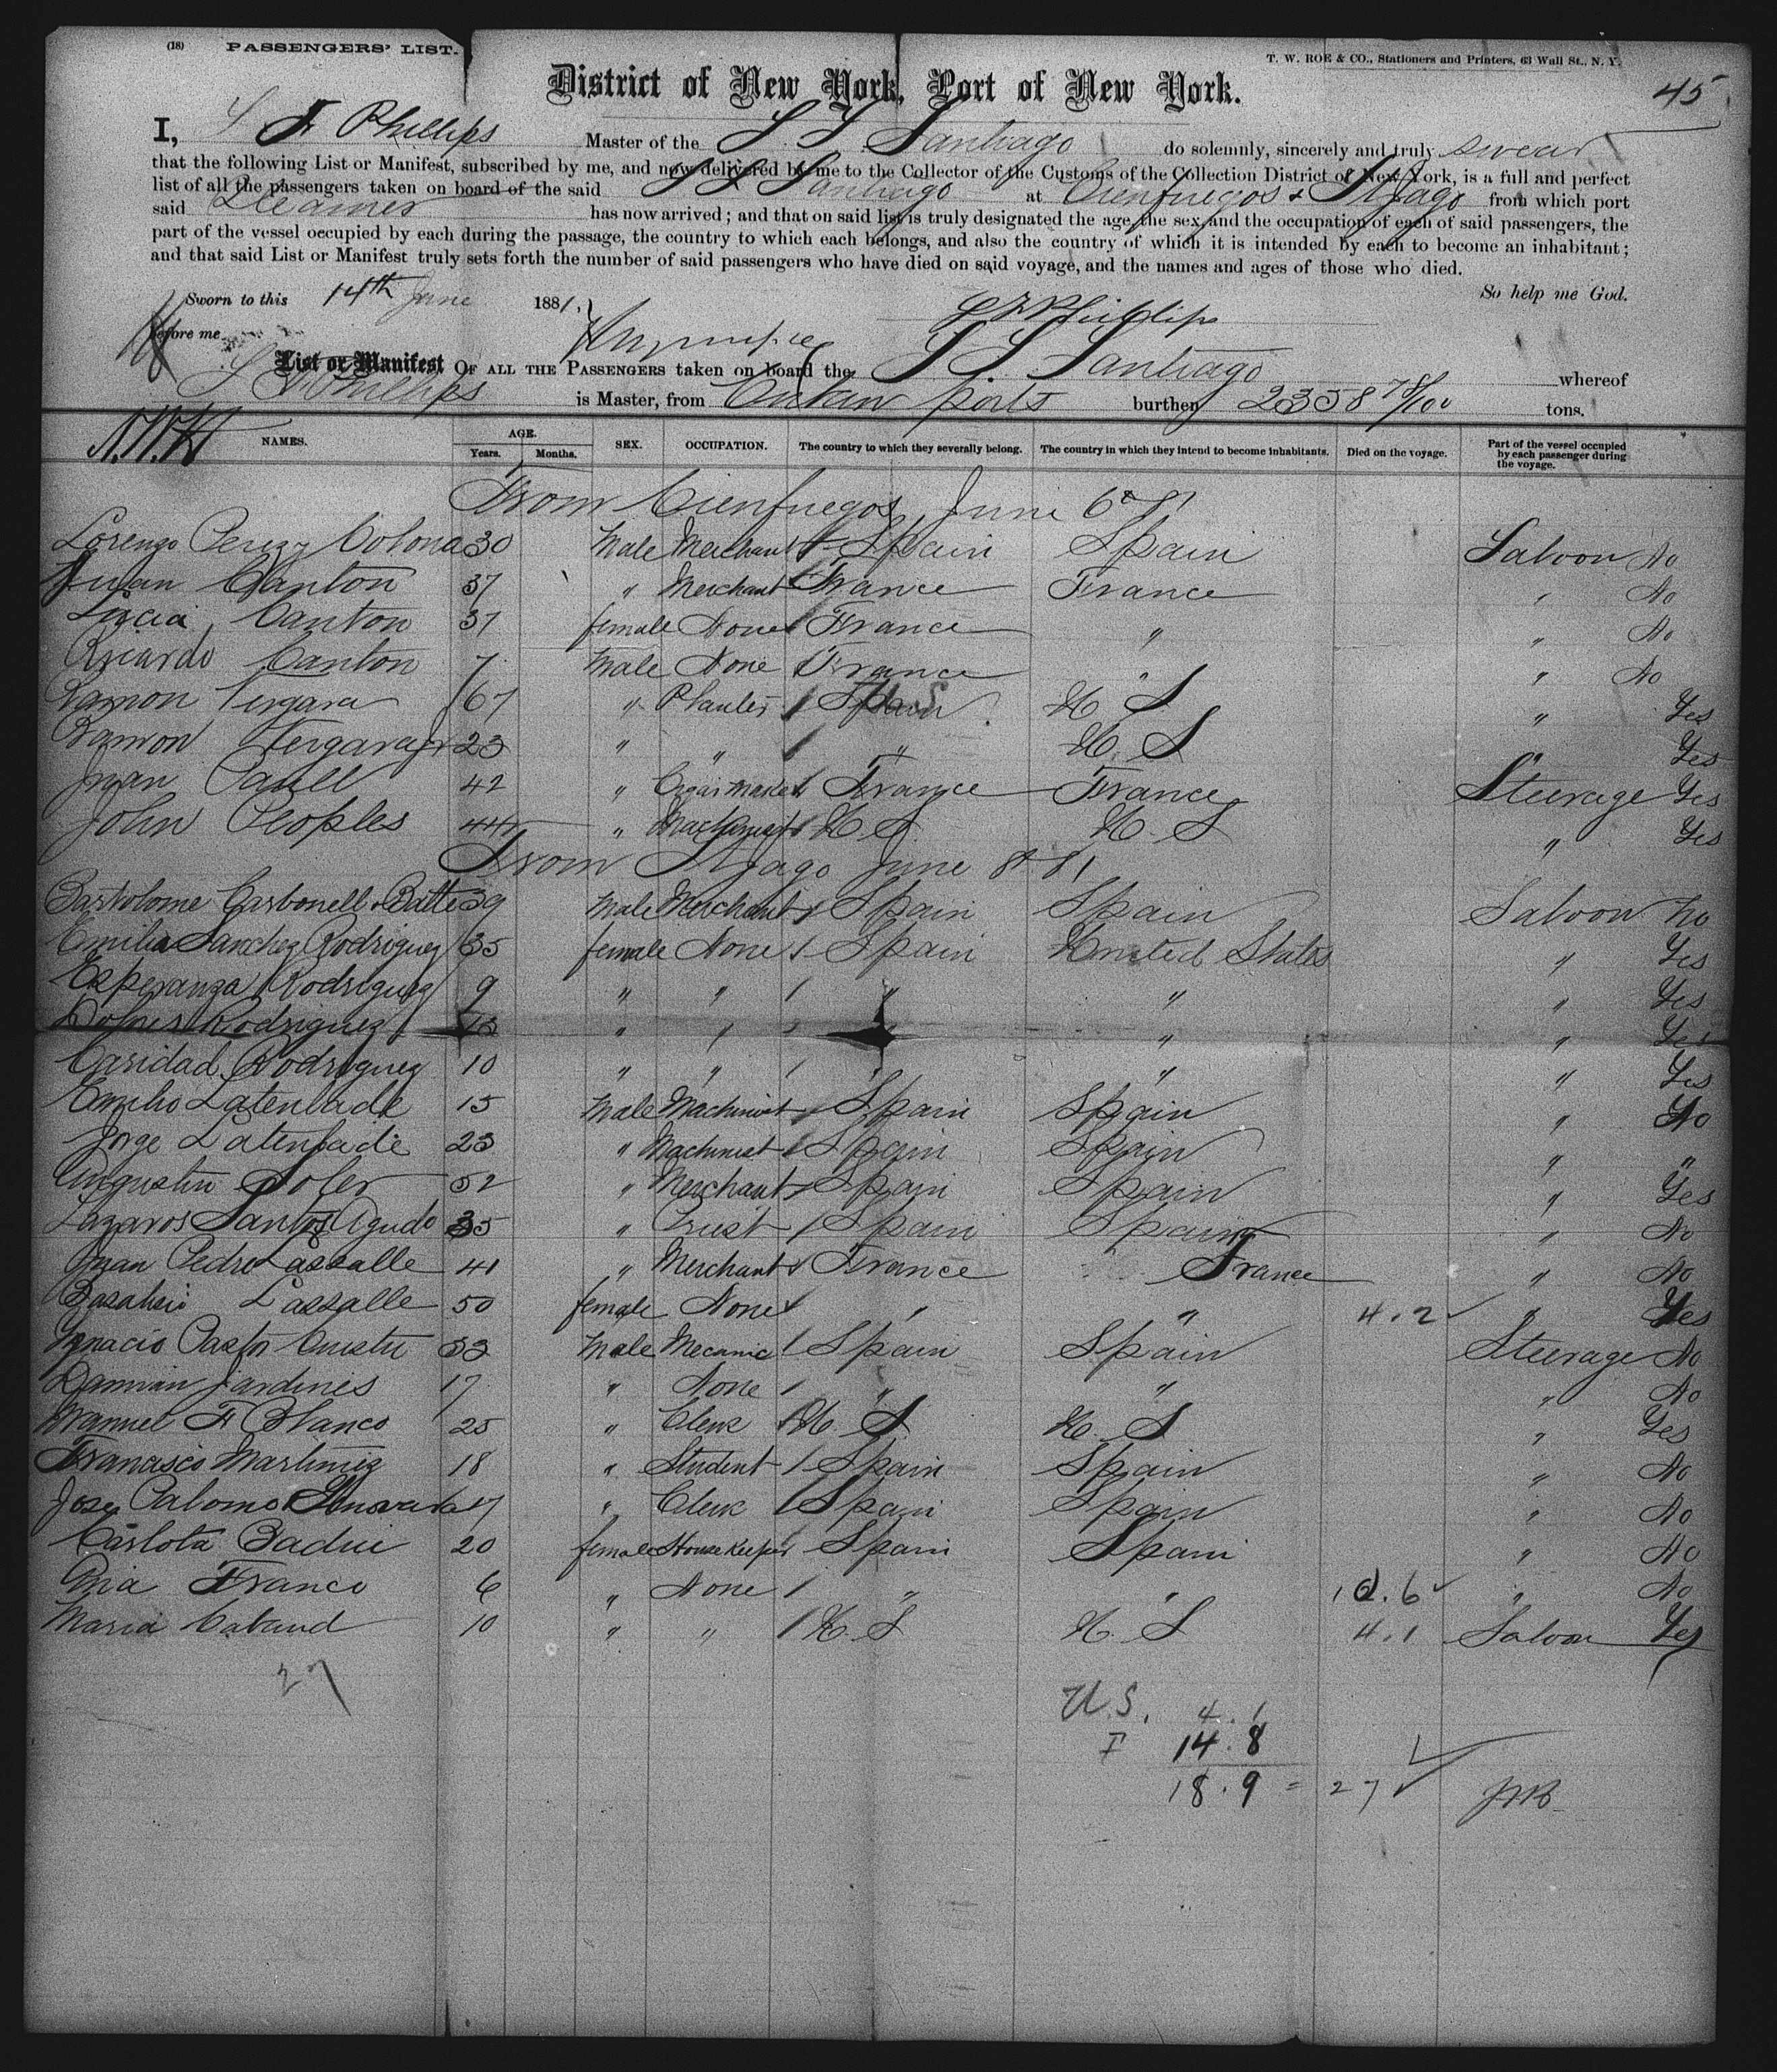 (18) PASSENGERS' LIST.
T. W. ROE & CO., Stationers and Printers, 63 Wall St., N. Y.
District of New York, Port of New York.
45
I, S F Phillips Master of the S. S. Santiago do solemnly, sincerely and truly swear
that the following List or Manifest, subscribed by me, and now delivered by me to the Collector of the Customs of the Collection District of New York, is a full and perfect
list of all the passengers taken on board of the said S S Santiago at Cienfuegos & St Jago from which port
said Steamer has now arrived; and that on said list is truly designated the age, the sex, and the occupation of each of said passengers, the
part of the vessel occupied by each during the passage, the country to which each belongs, and also the country of which it is intended by each to become an inhabitant;
and that said List or Manifest truly sets forth the number of said passengers who have died on said voyage, and the names and ages of those who died.
So help me God.
Sworn to this 14th June 1881.
Before me
S F Phillips
List or Manifest OF ALL THE PASSENGERS taken on board the S S Santiago whereof
S F Phillips is Master, from Cuban ports burthen 2358 78/100 tons.
NAMES. AGE. Years. Months. SEX. OCCUPATION. The country to which they severally belong. The country in which they intend to become inhabitants. Died on the voyage. Part of the vessel occupied by each passenger during the voyage.
From Cienfuegos, June 6 81
Lorenzo Perez y Colona 30 Male Merchant Spain Spain Saloon No
Juan Canton 37 " Merchant France France " No
Lucia Canton 37 female None France " " No
Ricardo Canton 7 Male None France " " No
Ramon Vergara 67 " Planter Spain U.S. U. S " Yes
Ramon Vergara jr 23 " " " U. S " Yes
Juan Paull 42 " Cigar maker France France Steerage Yes
John Peoples 44 " Machinist U. S U. S " Yes
From St Jago June 8 81
Bartolome Carbonell & Batte 39 Male Merchant Spain Spain Saloon No
Emilia Sanchez Rodriguez 35 female None Spain United States " Yes
Esperanza Rodriguez 9 " " " " " Yes
Rodriguez 13 " " " " Yes
Caridad Rodriguez 10 " " " " " Yes
Emilio Latenlade 15 Male Machinist Spain Spain " No
Jorge Latenlade 23 " Machinist Spain Spain " "
Augustin Soler 52 " Merchant Spain Spain " Yes
Lazaros Santos Agudo 35 " Priest Spain Spain " No
Juan Pedro Lassalle 41 " Merchant France France " No
Lassalle 50 female None " " 4.2 " Yes
Ignacio Pastor 33 Male Mecanic Spain Spain Steerage No
Damian Jardines 17 " None " " " No
Manuel F Blanco 25 " Clerk U. S U. S " Yes
Francisco Martinez 18 " Student Spain Spain " No
Jose Palomo 17 " Clerk Spain Spain " No
Carlota Badue 20 female House Keeper Spain Spain " No
Pia Franco 6 " None " " 10.6 " No
Maria Cabaud 10 " " U. S U. S 4.1 Saloon Yes
27
U.S. 4.1
F 14.8
18.9 = 27